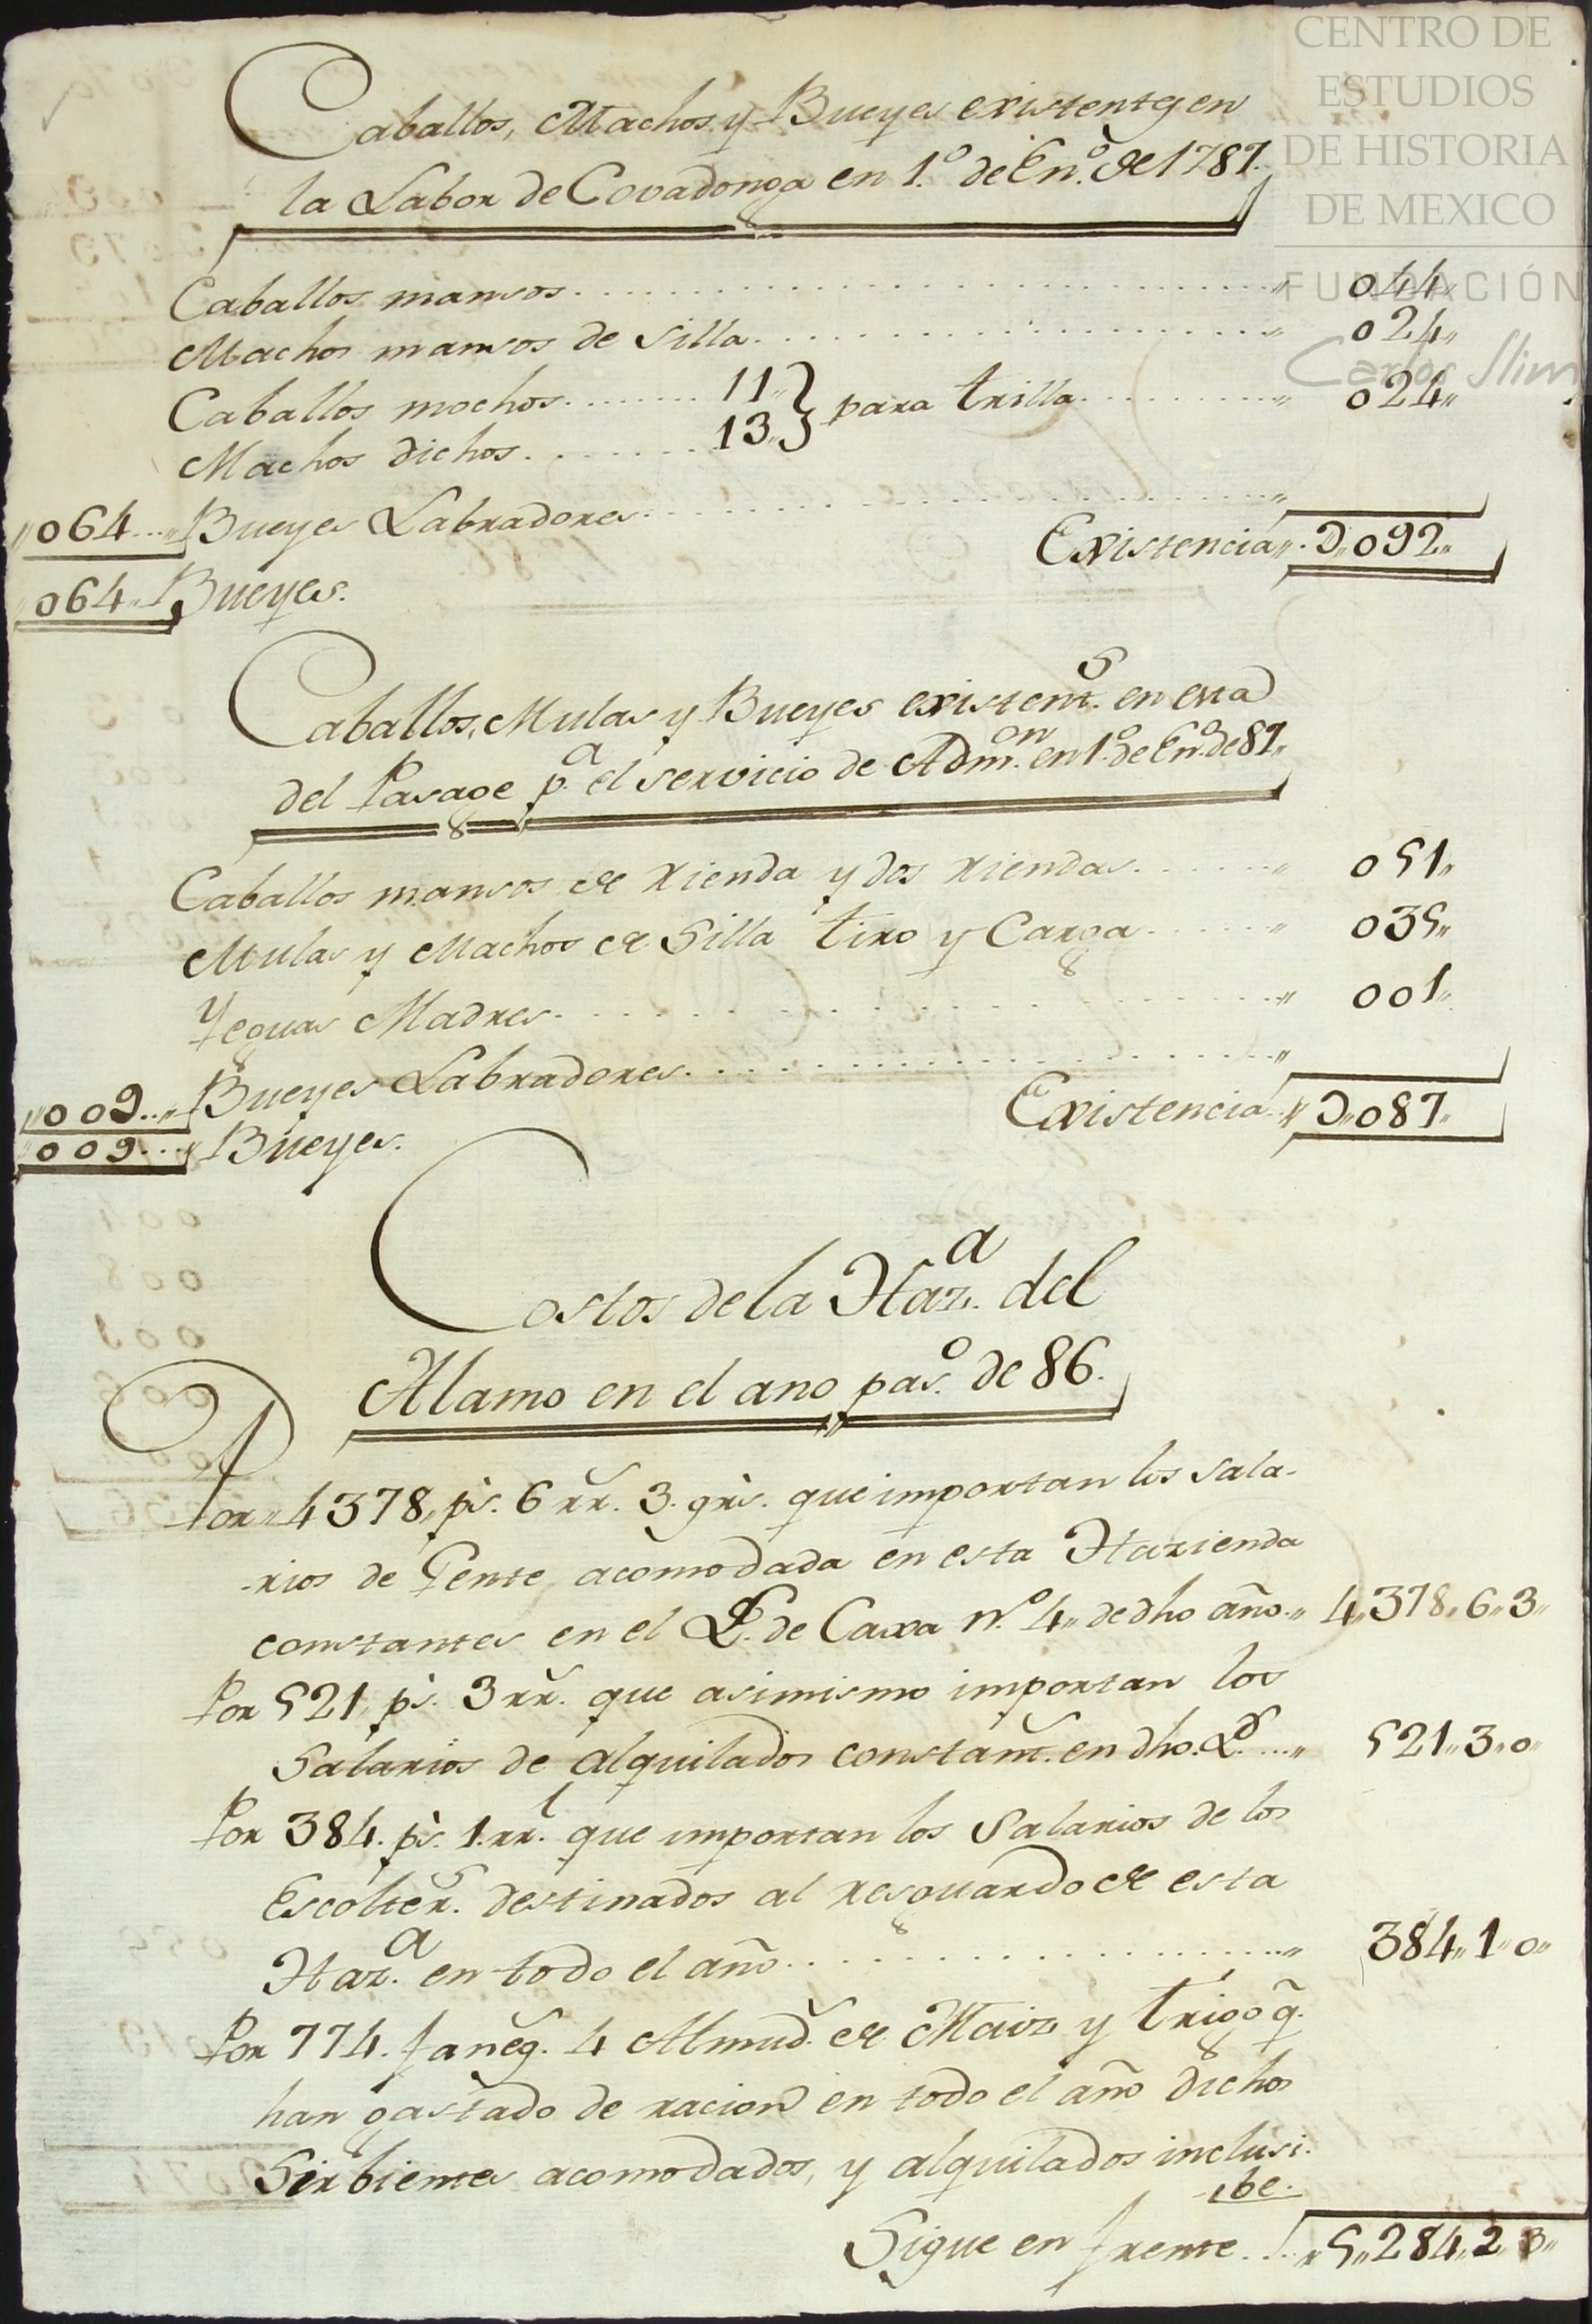 CENTRO DE
ESTUDIOS
DE HISTORIA
DE MEXICO
FUNDACIÓN
Carlos Slim
Caballos, Machos y Bueyes existentes en
la Labor de Covadonga en 1.º de En.º de 1787.
Caballos mansos . . . . . . . . . . . . " 044"
Machos mansos de silla . . . . . . . . . " 024"
Caballos mochos . . . . . 11" } para trilla . . . . . " 024"
Machos dichos . . . . . . 13" }
"064..." Bueyes Labradores . . . . . . . . . "
Existencia". D"092"
"064" Bueyes.
Caballos, Mulas y Bueyes existent.s en esta
del Pasage p.a el servicio de Adm.on en 1.º de En.º de 87"
Caballos mansos de rienda y dos riendas . . . . " 051"
Mulas y Machos de Silla tiro y Carga . . . . . " 035"
Yeguas Madres . . . . . . . . . . . . " 001"
"009..." Bueyes Labradores . . . . . . . . . "
Existencia.." D"087"
"009..." Bueyes.
Costos de la Haz.a del
Alamo en el ano pas.o de 86.
Por "4378" ps. 6 rr. 3. grs. que importan los sala-
-rios de Gente acomodada en esta Hazienda
constantes en el L. de Caxa N.º 4" de dho año " 4"378"6"3"
Por 521" ps. 3 rr. que asimismo importan los
Salarios de alquilados constant. en dho. L. ..." 521"3"0"
Por 384. ps. 1. rr.l que importan los Salarios de los
Escolter.s destinados al resguardo de esta
Haz.a en todo el año . . . . . . . . . . " 384"1"0"
Por 774. faneg. 4 Almud. de Maiz y trigo q̃.
han gastado de racion en todo el año dichos
Sirbientes acomodados, y alquilados inclusi-
-be.
Sigue en frente . . . "5"284"2"3"